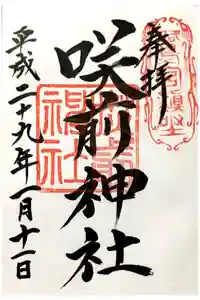 奉拝
咲前神社
平成二十九年一月十一日